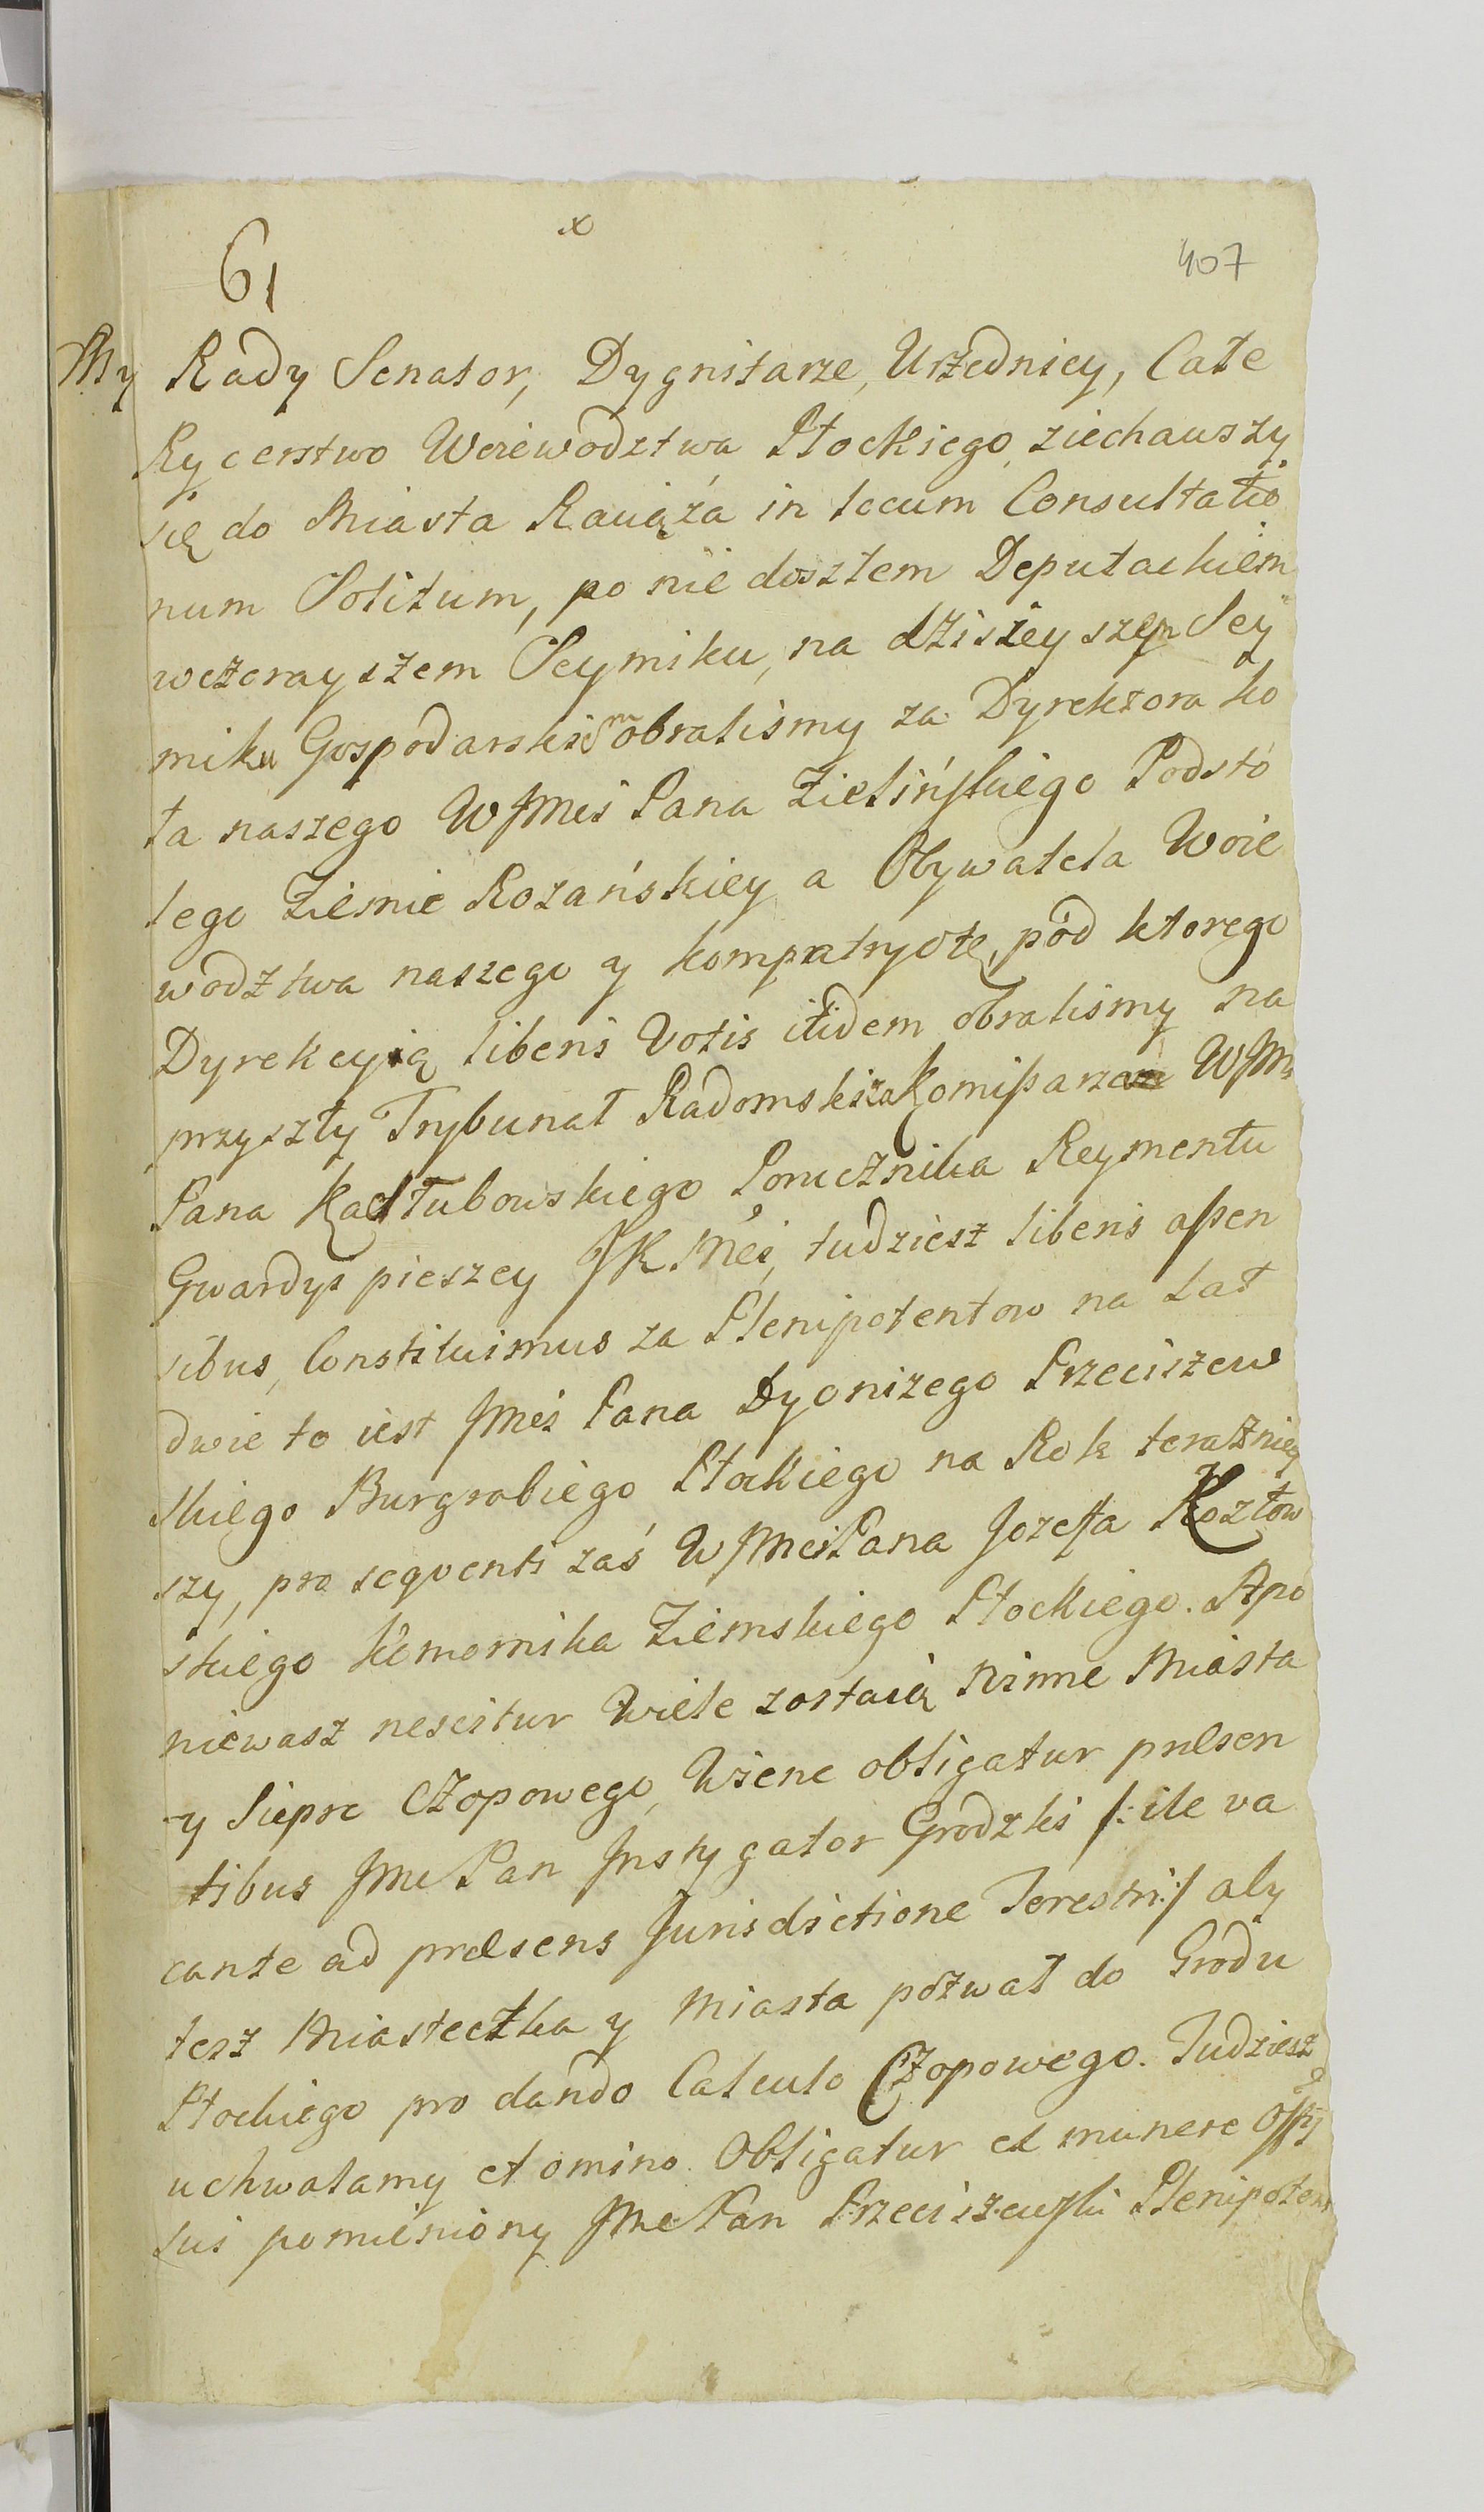 x
61
407
My Rady Senator, Dygnitarze, Urzednicy, Całe
Rycerstwo Woiewodztwa Płockiego ziechawszy
się do Miasta Raciąża in locum Consultatio
num Solitum, po nie doszłem Deputackiem
wczorayszem Seymiku, na dzisieyszym Sey
miku Gospodarskiem obraliśmy za Dyrektora ko
ła naszego WJMci Pana Zielińskiego Podsto
lego Ziemie Rozańskiey a Obywatela Woie
wodztwa naszego y kompatryotę, pod ktorego
Dyrekcyią liberis Votis itidem obraliśmy na
przyszły Trybunał Radomski za Komissarza WJM
Pana Kadłubowskiego Porucznika Reymentu
Gwardyi pieszey JK.Mci, tudziesz liberis assen
sibus, Constituimus za Plenipotentow na Lat
dwie to iest JMci Pana Dyonizego Przeciszew
skiego Burgrabiego Płockiego na Rok teraźniey
szy, pro sequenti zaś WJMci Pana Jozefa Kozłow
skiego Komornika Ziemskiego Płockiego. A po
niewasz nescitur Wiele zostaią winne Miasta
y Sieprc Czopowego, Wiene obligatur praesen
tibus JMc Pan Instygator Grodzki /: ile va
cante ad praesens Jurisdictione Terestri :/ aby
tesz Miasteczka y Miasta pozwał do Grodu
Płockiego pro dando Calculo Czopowego. Tudziesz
uchwalamy et omino Obligatur et munere Offij
sui pomieniony JMc Pan Przeciszewski Plenipotent